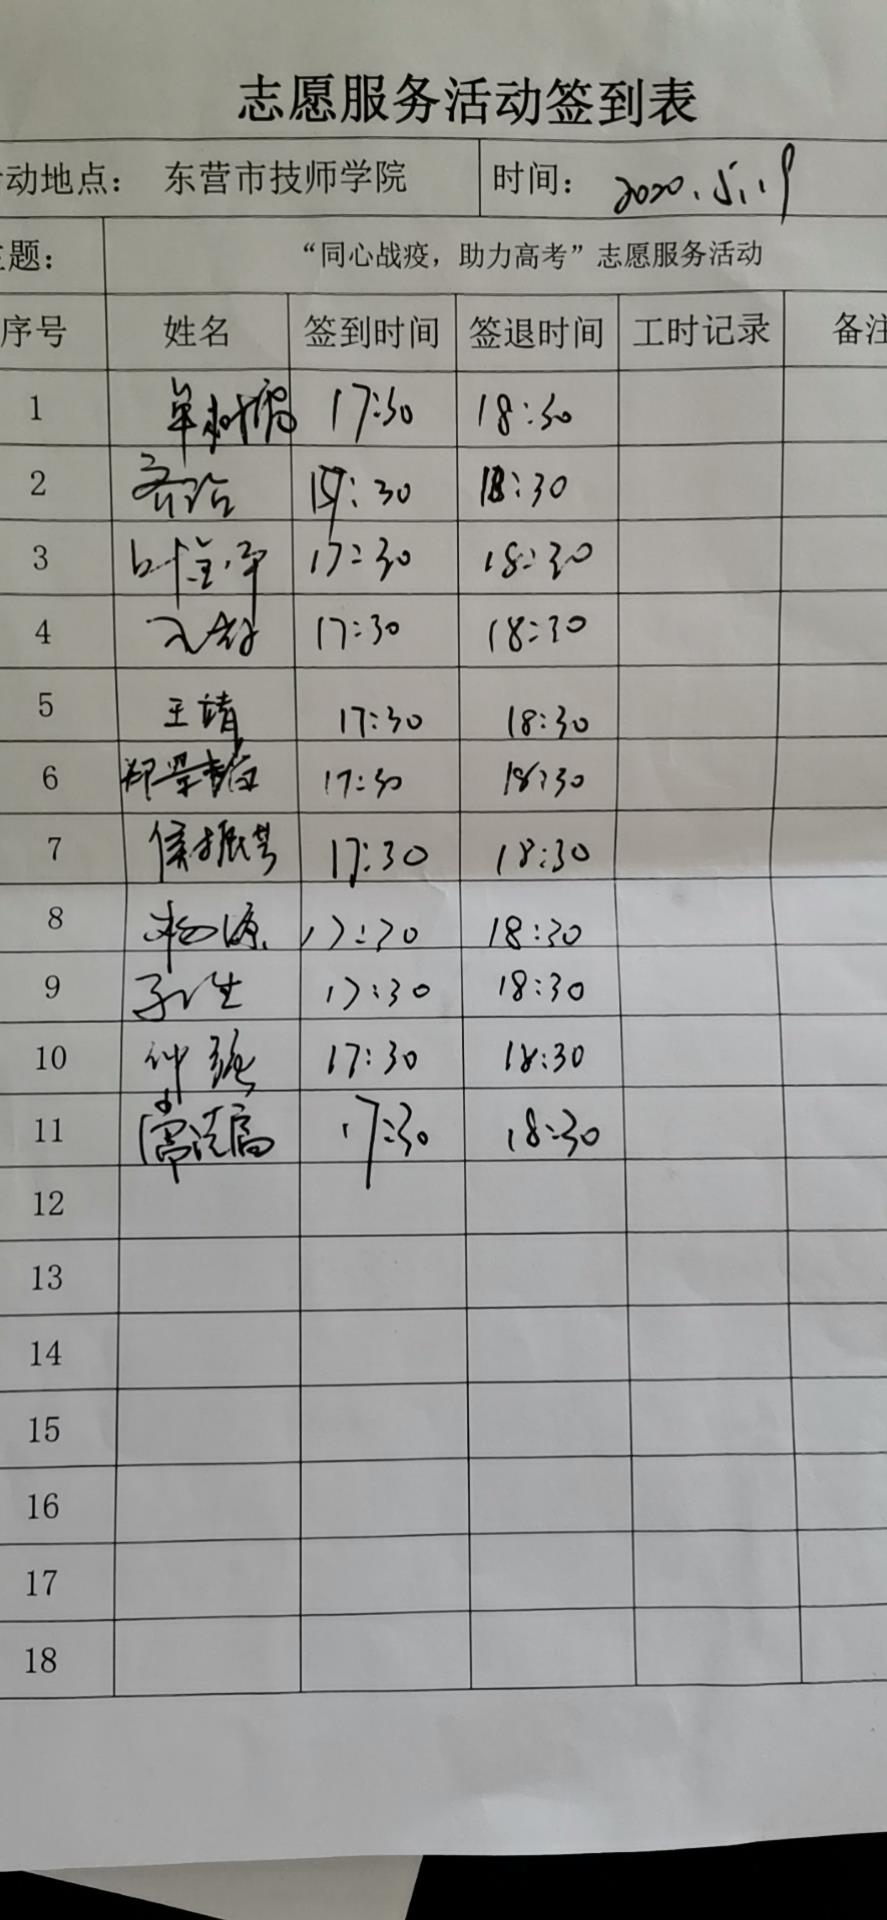 志愿服务活动签到表
动地点： 东营市技师学院 时间： 2020.5.19
主题： “同心战疫，助力高考”志愿服务活动
序号 姓名 签到时间 签退时间 工时记录 备注
1 17:30 18:30
2 17:30 18:30
3 17:30 18:30
4 17:30 18:30
5 王靖 17:30 18:30
6 17:30 18:30
7 侯振芳 17:30 18:30
8 17:30 18:30
9 17:30 18:30
10 17:30 18:30
11 17:30 18:30
12
13
14
15
16
17
18